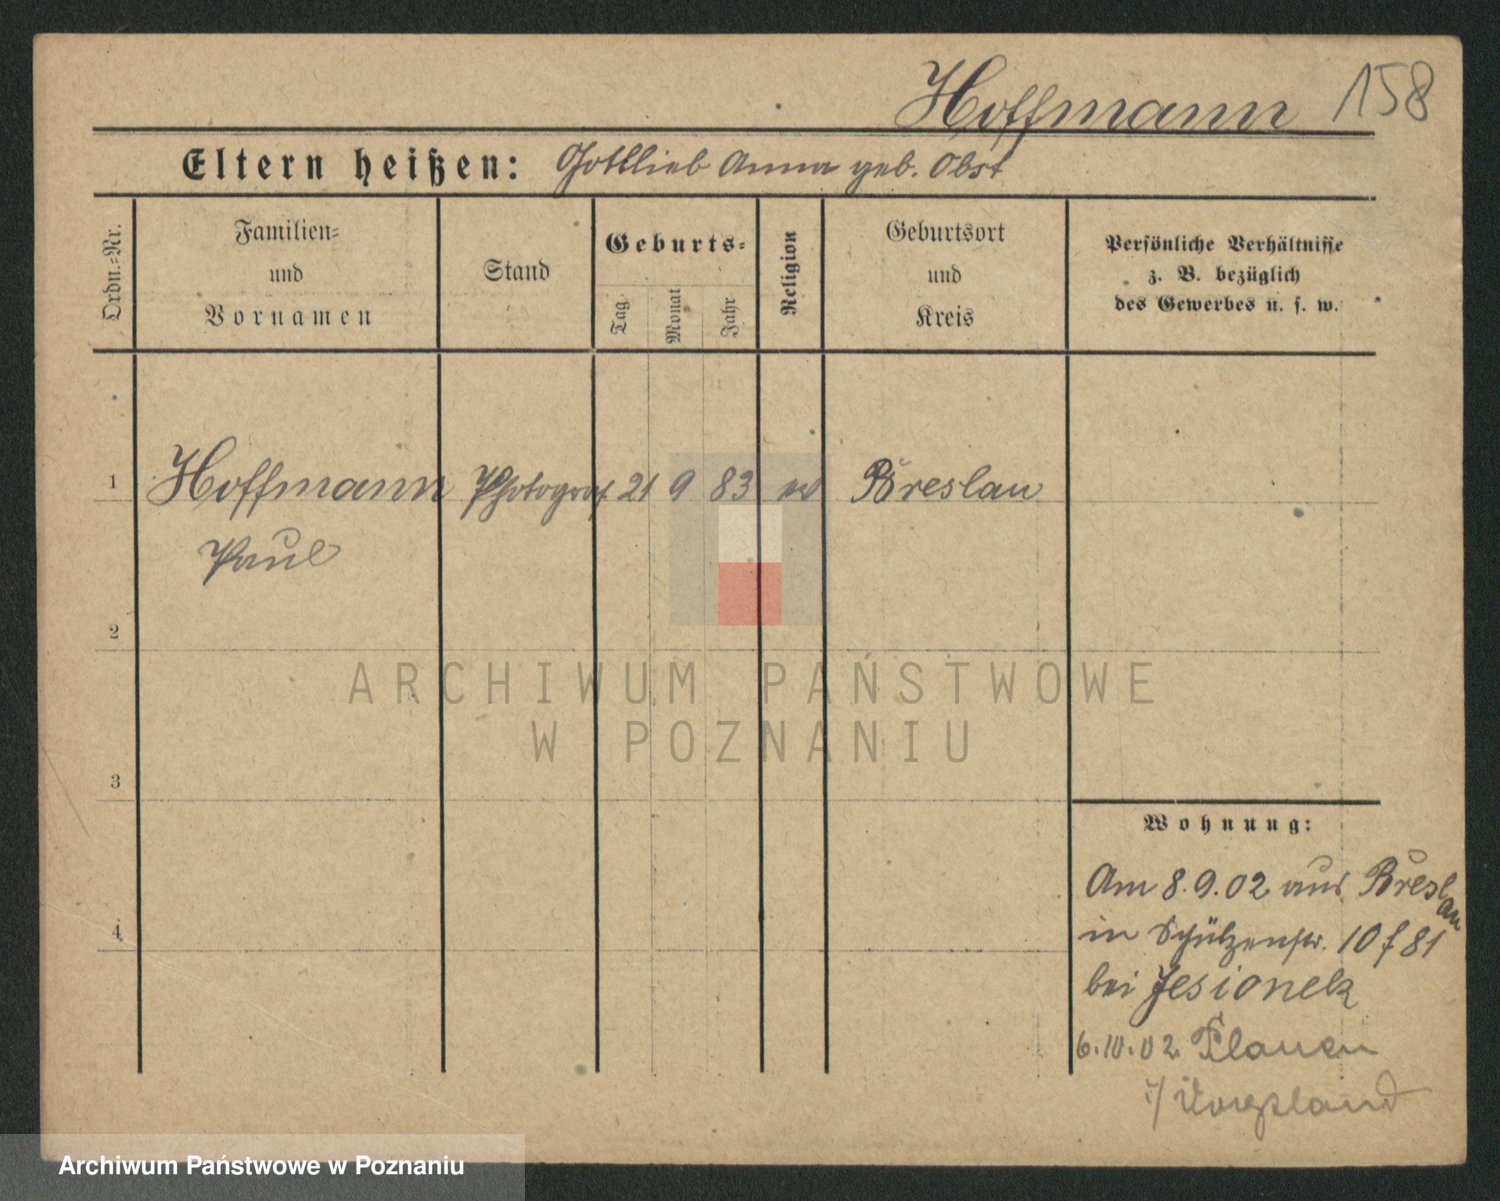 Hoffmann 158
Eltern heißen: Gottlieb Anna geb. Obst
Ordn.-Nr.
Familien-
und
Vornamen
Stand
Geburts-
Tag
Monat
Jahr
Religion
Geburtsort
und
Kreis
Persönliche Verhältnisse
z. B. bezüglich
des Gewerbes u. s. w.
1 Hoffmann Photograf 21 9 83 ev Breslau
Paul
2
3
4
Wohnung:
Am 8.9.02 aus Breslau
in Schützenstr. 10 f 81
bei Jesionek
6.10.02 Plauen
i/ Voigtland
ARCHIWUM PAŃSTWOWE
W POZNANIU
Archiwum Państwowe w Poznaniu